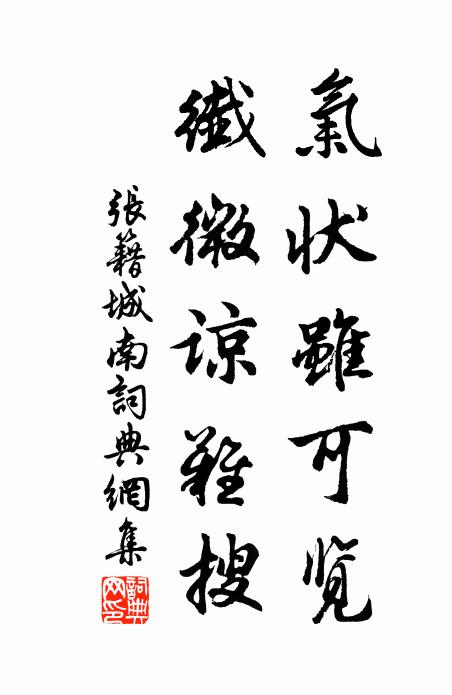 氣状雖可览
纖微谅難搜
張籍城南詞典網集
詞典网印